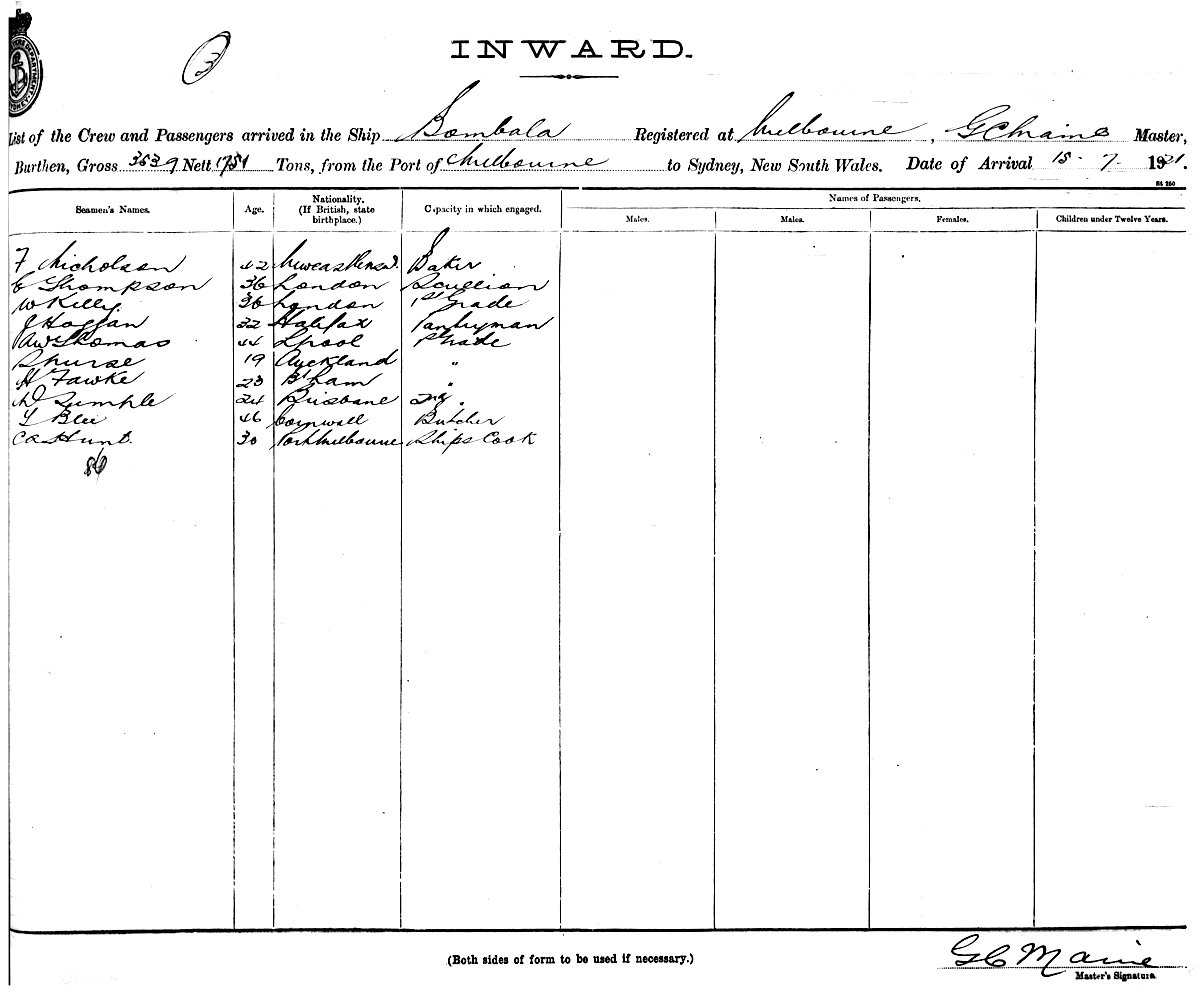 3
INWARD.
List of the Crew and Passengers arrived in the Ship Bombala Registered at Melbourne, G C Maine Master,
Burthen, Gross 3539 Nett Tons, from the Port of Melbourne to Sydney, New South Wales. Date of Arrival 15 - 7 - 1921.
Seamen's Names. Age. Nationality. (If British, state birthplace.) Capacity in which engaged. Names of Passengers.
Males. Males. Females. Children under Twelve Years.
F Nicholson 42 Baker
Thompson 36 London Scullion
W Kelly 36 London 1st Grade
J Hoggan 32 Halifax Pantryman
AW Thomas 44 Lpool Grade
19 Auckland "
H Fawke 23 B'ham "
24 Brisbane 2nd "
Blee 46 Cornwall Butcher
CA Hunt. 30 Port Melbourne Ships Cook
86
(Both sides of form to be used if necessary.)
G C Maine
Master's Signature.